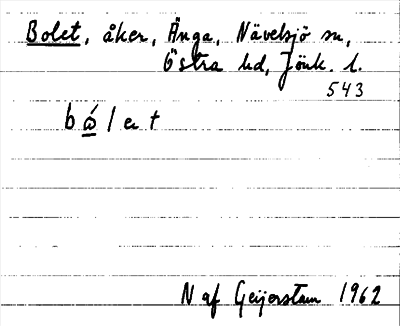 Bolet, åker, Änga, Nävelsjö sn,
Östra hd, Jönk. l.
543
N af Geijerstam 1962